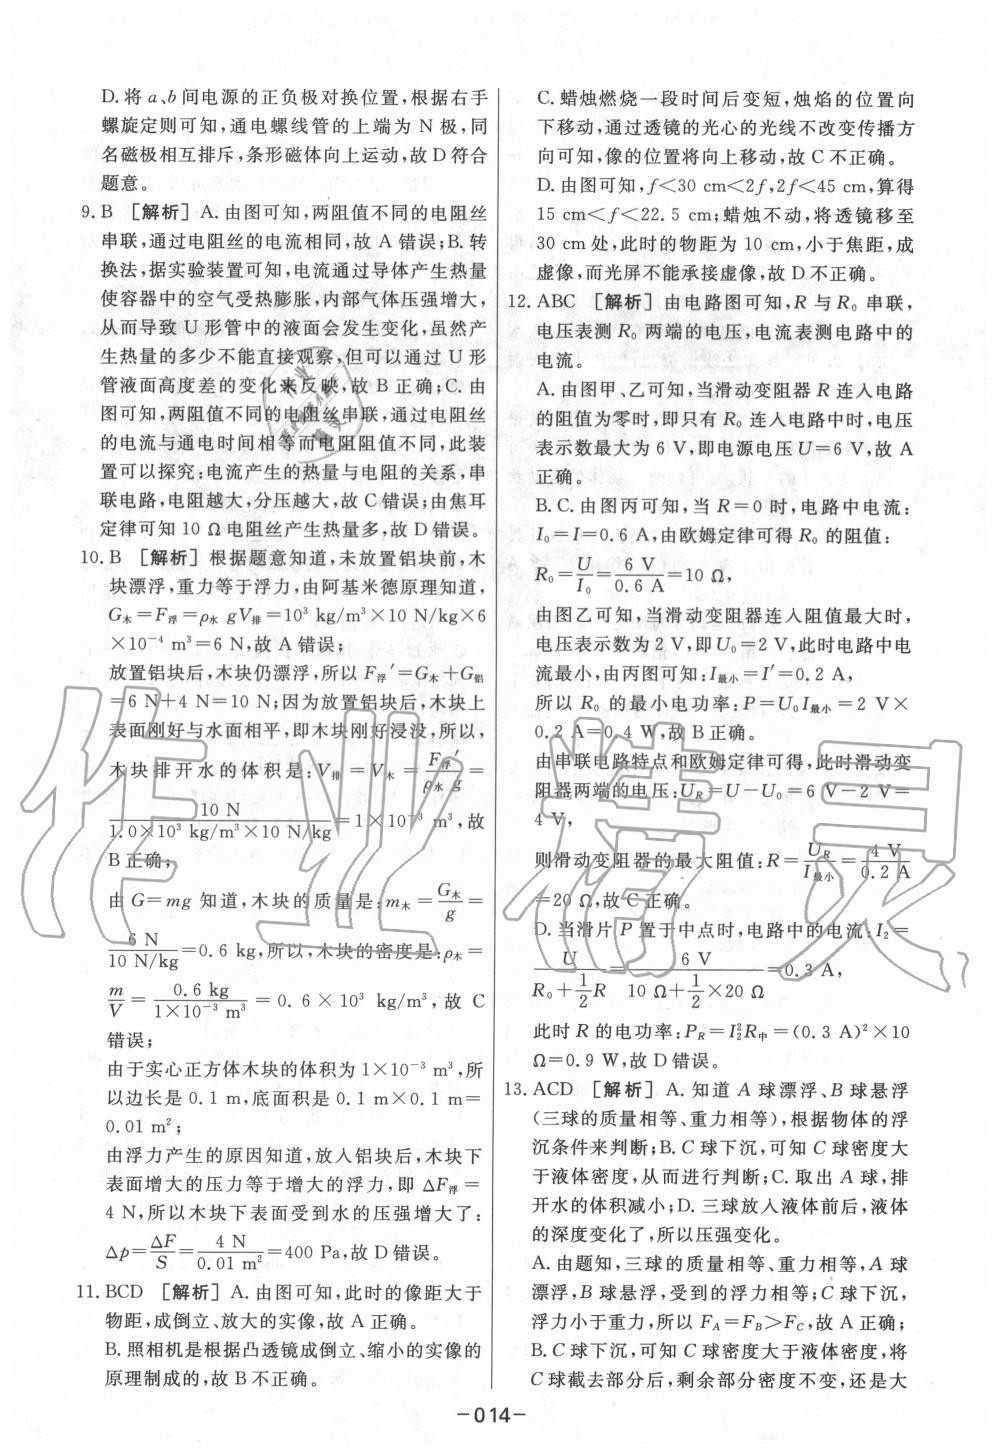 D. 将 a、b 间电源的正负极对换位置,根据右手
螺旋定则可知,通电螺线管的上端为 N 极,同
名磁极相互排斥,条形磁体向上运动,故 D 符合
题意。
9. B [解析] A. 由图可知,两阻值不同的电阻丝
串联,通过电阻丝的电流相同,故 A 错误;B. 转
换法,据实验装置可知,电流通过导体产生热量
使容器中的空气受热膨胀,内部气体压强增大,
从而导致 U 形管中的液面会发生变化,虽然产
生热量的多少不能直接观察,但可以通过 U 形
管液面高度差的变化来反映,故 B 正确;C. 由
图可知,两阻值不同的电阻丝串联,通过电阻丝
的电流与通电时间相等而电阻阻值不同,此装
置可以探究:电流产生的热量与电阻的关系,串
联电路,电阻越大,分压越大,故 C 错误;由焦耳
定律可知 10 Ω 电阻丝产生热量多,故 D 错误。
10. B [解析] 根据题意知道,未放置铝块前,木
块漂浮,重力等于浮力,由阿基米德原理知道,
G木=F浮=ρ水 gV排=10³ kg/m³×10 N/kg×6
×10⁻⁴ m³=6 N,故 A 错误;
放置铝块后,木块仍漂浮,所以 F浮′=G木+G铝
=6 N+4 N=10 N;因为放置铝块后,木块上
表面刚好与水面相平,即木块刚好浸没,所以,
木块排开水的体积是:V排=V木=F浮′/ρ水 g=
10 N/(1.0×10³ kg/m³×10 N/kg)=1×10⁻³ m³,故
B 正确;
由 G=mg 知道,木块的质量是:m木=G木/g=
6 N/(10 N/kg)=0.6 kg,所以,木块的密度是:ρ木=
m/V=0.6 kg/(1×10⁻³ m³)=0.6×10³ kg/m³,故 C
错误;
由于实心正方体木块的体积为 1×10⁻³ m³,所
以边长是 0.1 m,底面积是 0.1 m×0.1 m=
0.01 m²;
由浮力产生的原因知道,放入铝块后,木块下
表面增大的压力等于增大的浮力,即 ΔF浮=
4 N,所以木块下表面受到水的压强增大了:
Δp=ΔF/S=4 N/0.01 m²=400 Pa,故 D 错误。
11. BCD [解析] A. 由图可知,此时的像距大于
物距,成倒立、放大的实像,故 A 正确。
B. 照相机是根据凸透镜成倒立、缩小的实像的
原理制成的,故 B 不正确。
C. 蜡烛燃烧一段时间后变短,烛焰的位置向
下移动,通过透镜的光心的光线不改变传播方
向可知,像的位置将向上移动,故 C 不正确。
D. 由图可知,f<30 cm<2f,2f<45 cm,算得
15 cm<f<22.5 cm;蜡烛不动,将透镜移至
30 cm 处,此时的物距为 10 cm,小于焦距,成
虚像,而光屏不能承接虚像,故 D 不正确。
12. ABC [解析] 由电路图可知,R 与 R₀ 串联,
电压表测 R₀ 两端的电压,电流表测电路中的
电流。
A. 由图甲、乙可知,当滑动变阻器 R 连入电路
的阻值为零时,即只有 R₀ 连入电路中时,电压
表示数最大为 6 V,即电源电压 U=6 V,故 A
正确。
B. C. 由图丙可知,当 R=0 时,电路中电流:
I₀=I=0.6 A,由欧姆定律可得 R₀ 的阻值:
R₀=U/I₀=6 V/0.6 A=10 Ω,
由图乙可知,当滑动变阻器连入阻值最大时,
电压表示数为 2 V,即 U₀=2 V,此时电路中电
流最小,由丙图可知:I最小=I′=0.2 A,
所以 R₀ 的最小电功率:P=U₀I最小=2 V×
0.2 A=0.4 W,故 B 正确。
由串联电路特点和欧姆定律可得,此时滑动变
阻器两端的电压:U_R=U-U₀=6 V-2 V=
4 V,
则滑动变阻器的最大阻值:R=U_R/I最小=4 V/0.2 A
=20 Ω,故 C 正确。
D. 当滑片 P 置于中点时,电路中的电流:I₂=
U/(R₀+½R)=6 V/(10 Ω+½×20 Ω)=0.3 A,
此时 R 的电功率:P_R=I₂²R中=(0.3 A)²×10
Ω=0.9 W,故 D 错误。
13. ACD [解析] A. 知道 A 球漂浮、B 球悬浮
(三球的质量相等、重力相等),根据物体的浮
沉条件来判断;B. C 球下沉,可知 C 球密度大
于液体密度,从而进行判断;C. 取出 A 球,排
开水的体积减小;D. 三球放入液体前后,液体
的深度变化了,所以压强变化。
A. 由题知,三球的质量相等、重力相等,A 球
漂浮,B 球悬浮,受到的浮力相等;C 球下沉,
浮力小于重力,所以 F_A=F_B>F_C,故 A 正确;
B. C 球下沉,可知 C 球密度大于液体密度,将
C 球截去部分后,剩余部分密度不变,还是大
-014-
作业精灵